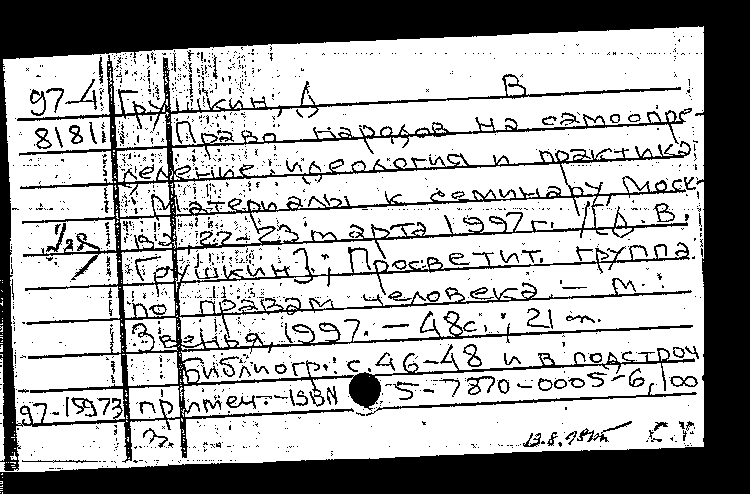 97-4 Грушкин, Д В
8181 Право народов на самоопре-
деление: идеология и практика
: Материалы к семинару, Моск-
ва, 22-23 марта 1997г. / [Д. В.
Грушкин]; Просветит. группа
по правам человека. — М. :
Звенья, 1997. — 48с.; 21 см.
Библиогр.: с. 46-48 и в подстроч
97-15973 примеч. — ISBN 5-7870-0005-6, 100
э.
С.У